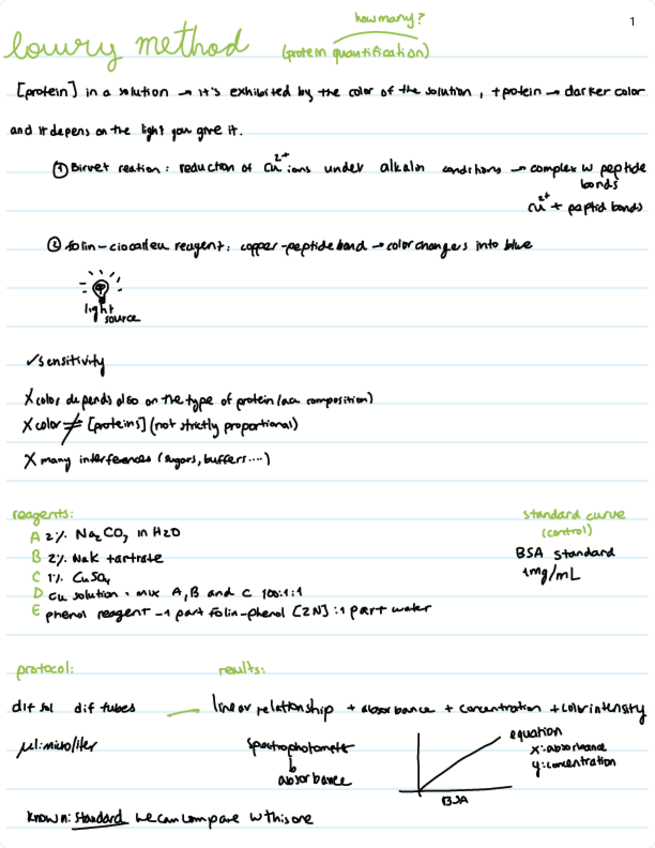 how many?
1
lowry method (protein quantification)
[protein] in a solution → it's exhibited by the color of the solution, + protein → darker color
and it depens on the light you give it.
① Biruet reation: reduction of Cu²⁺ ions under alkalin conditions → complex w peptide
bonds
Cu²⁺ + peptid bonds
② folin-ciocalteu reagent: copper-peptide bond → color changers into blue
light
source
✓ sensitivity
X color depends also on the type of protein (aa composition)
X color ≠ [proteins] (not strictly proportional)
X many interferences (sugars, buffers....)
reagents:
A 2% Na₂CO₃ in H2O
B 2% NaK tartrate
C 1% CuSO₄
D Cu solution = mix A, B and C 100:1:1
E phenol reagent - 1 part folin-phenol [2N] : 1 part water
standard curve
(control)
BSA standard
1mg/mL
protocol:
results:
dif sol dif tubes — linear relationship + absorbance + concentration + color intensity
µl: microliter
spectrophotometer
absorbance
equation
x: absorbance
y: concentration
BSA
known: standard we can compare w this one